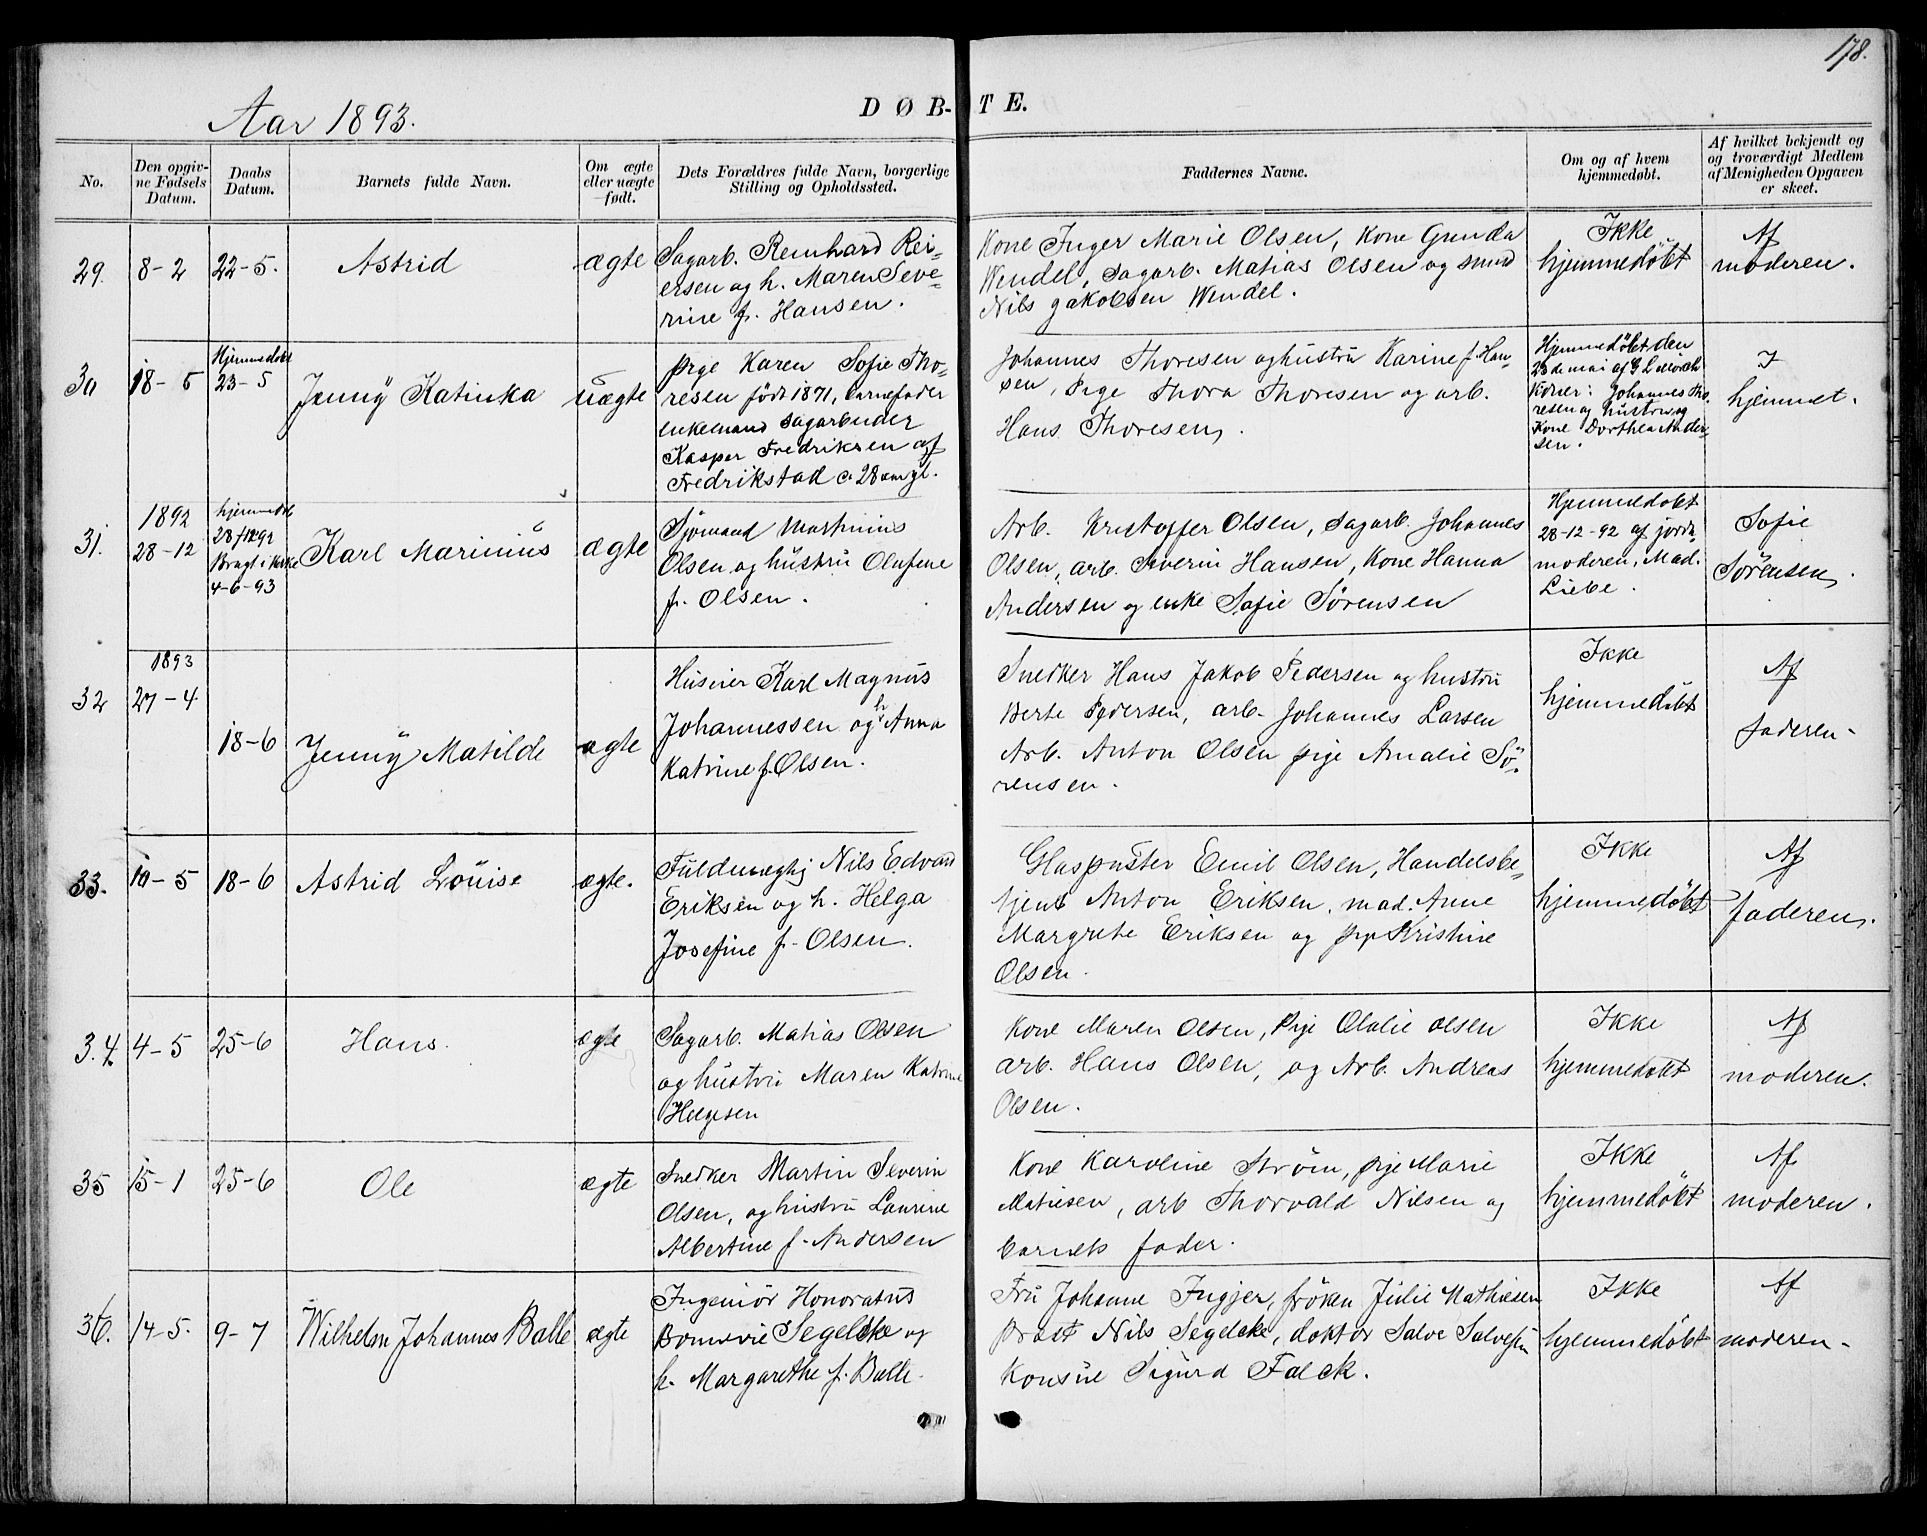 178.
Aar 1893.
DØBTE.
No.
Den opgivne Fødsels Datum.
Daabs Datum.
Barnets fulde Navn.
Om ægte eller uægte født.
Dets Forældres fulde Navn, borgerlige Stilling og Opholdssted.
Faddernes Navne.
Om og af hvem hjemmedøbt.
Af hvilket bekjendt og og troværdigt Medlem af Menigheden Opgaven er skeet.
29.
8-2
22-5.
Astrid
ægte
Sagarb. Reinhard Rei-
ersen og h. Maren Seve-
rine f. Hansen.
Kone Inger Marie Olsen, Kone Gunda
Wendel, Sagarb. Matias Olsen og smed
Nils Jakobsen Wendel.
Ikke
hjemmedöbt
Af
moderen.
30
18-5
Hjemmedöbt
23-5
Jenny Katinka
uægte
Pige Karen Sofie Tho-
resen födt 1871, barnefader
enkemand sagarbeider
Kasper Fredriksen af
Fredrikstad c. 28 aar gl.
Johannes Thoresen og hustru Karine f. Han-
sen, Pige Thora Thoresen og arb.
Hans Thoresen.
Hjemmedøbt den
23de mai af G L Mörch
Koner: Johannes Tho-
resen og hustru og
Kone Dorthea Ander-
sen.
I
hjemmet.
31.
1892
28-12
hjemmedöbt
28/12 92
Bragt i kirke
4-6-93
Karl Marinius
ægte
Sjømand Martinius
Olsen og hustru Olufine
f. Olsen.
Arb. Kristoffer Olsen, sagarb. Johannes
Olsen, arb. Severin Hansen, Kone Hanna
Andersen og enke Sofie Sørensen
Hjemmedobt
28-12-92 af jorde-
moderen, Mad.
Liebe.
Sofie
Sørensen.
32
1893
27-4
18-6
Jenny Matilde
ægte
Huseier Karl Magnus
Johannessen og h Anna
Katrine f. Olsen.
Snedker Hans Jakob Pedersen og hustru
Berte Pedersen, arb. Johannes Larsen
Arb. Anton Olsen pige Amalie Sö-
rensen.
Ikke
hjemmedöbt
Af
faderen-
33.
10-5
18-6
Astrid Louise
ægte.
Fuldmægtig Nils Edvard
Eriksen og h. Helga
Josefine f. Olsen.
Glaspuster Emil Olsen, Handelsbe-
tjent Anton Eriksen, mad. Anne
Margrete Eriksen og pige Kristine
Olsen.
Ikke
hjemmedöbt
Af
faderen.
34.
4-5
25-6
Hans.
ægte
Sagarb. Matias Olsen
og hustru Maren Katrine
Helgesen
Kone Maren Olsen, Pige Olalie Olsen
arb. Hans Olsen, og Arb. Andreas
Olsen.
Ikke
hjemmedöbt
Af
moderen.
35
15-1
25-6
Ole
ægte
Snedker Martin Severin
Olsen, og hustru Laurine
Albertine f. Andersen
Kone Karoline Strøm, pige Marie
Matiesen, arb Thorvald Nilsen og
barnets fader.
Ikke
hjemmedöbt
Af
moderen.
36.
14-5.
9-7
Wilhelm Johannes Balle
ægte
Ingeniör Honoratus
Bonnevie Segelcke og
h. Margarethe f. Balle.
Fru Johanne Ingjer, fröken Julie Mathiesen
Prost Nils Segelcke, doktor Salve Salvesen
Konsul Sigurd Falck.
Ikke
hjemmedöbt
Af
moderen-